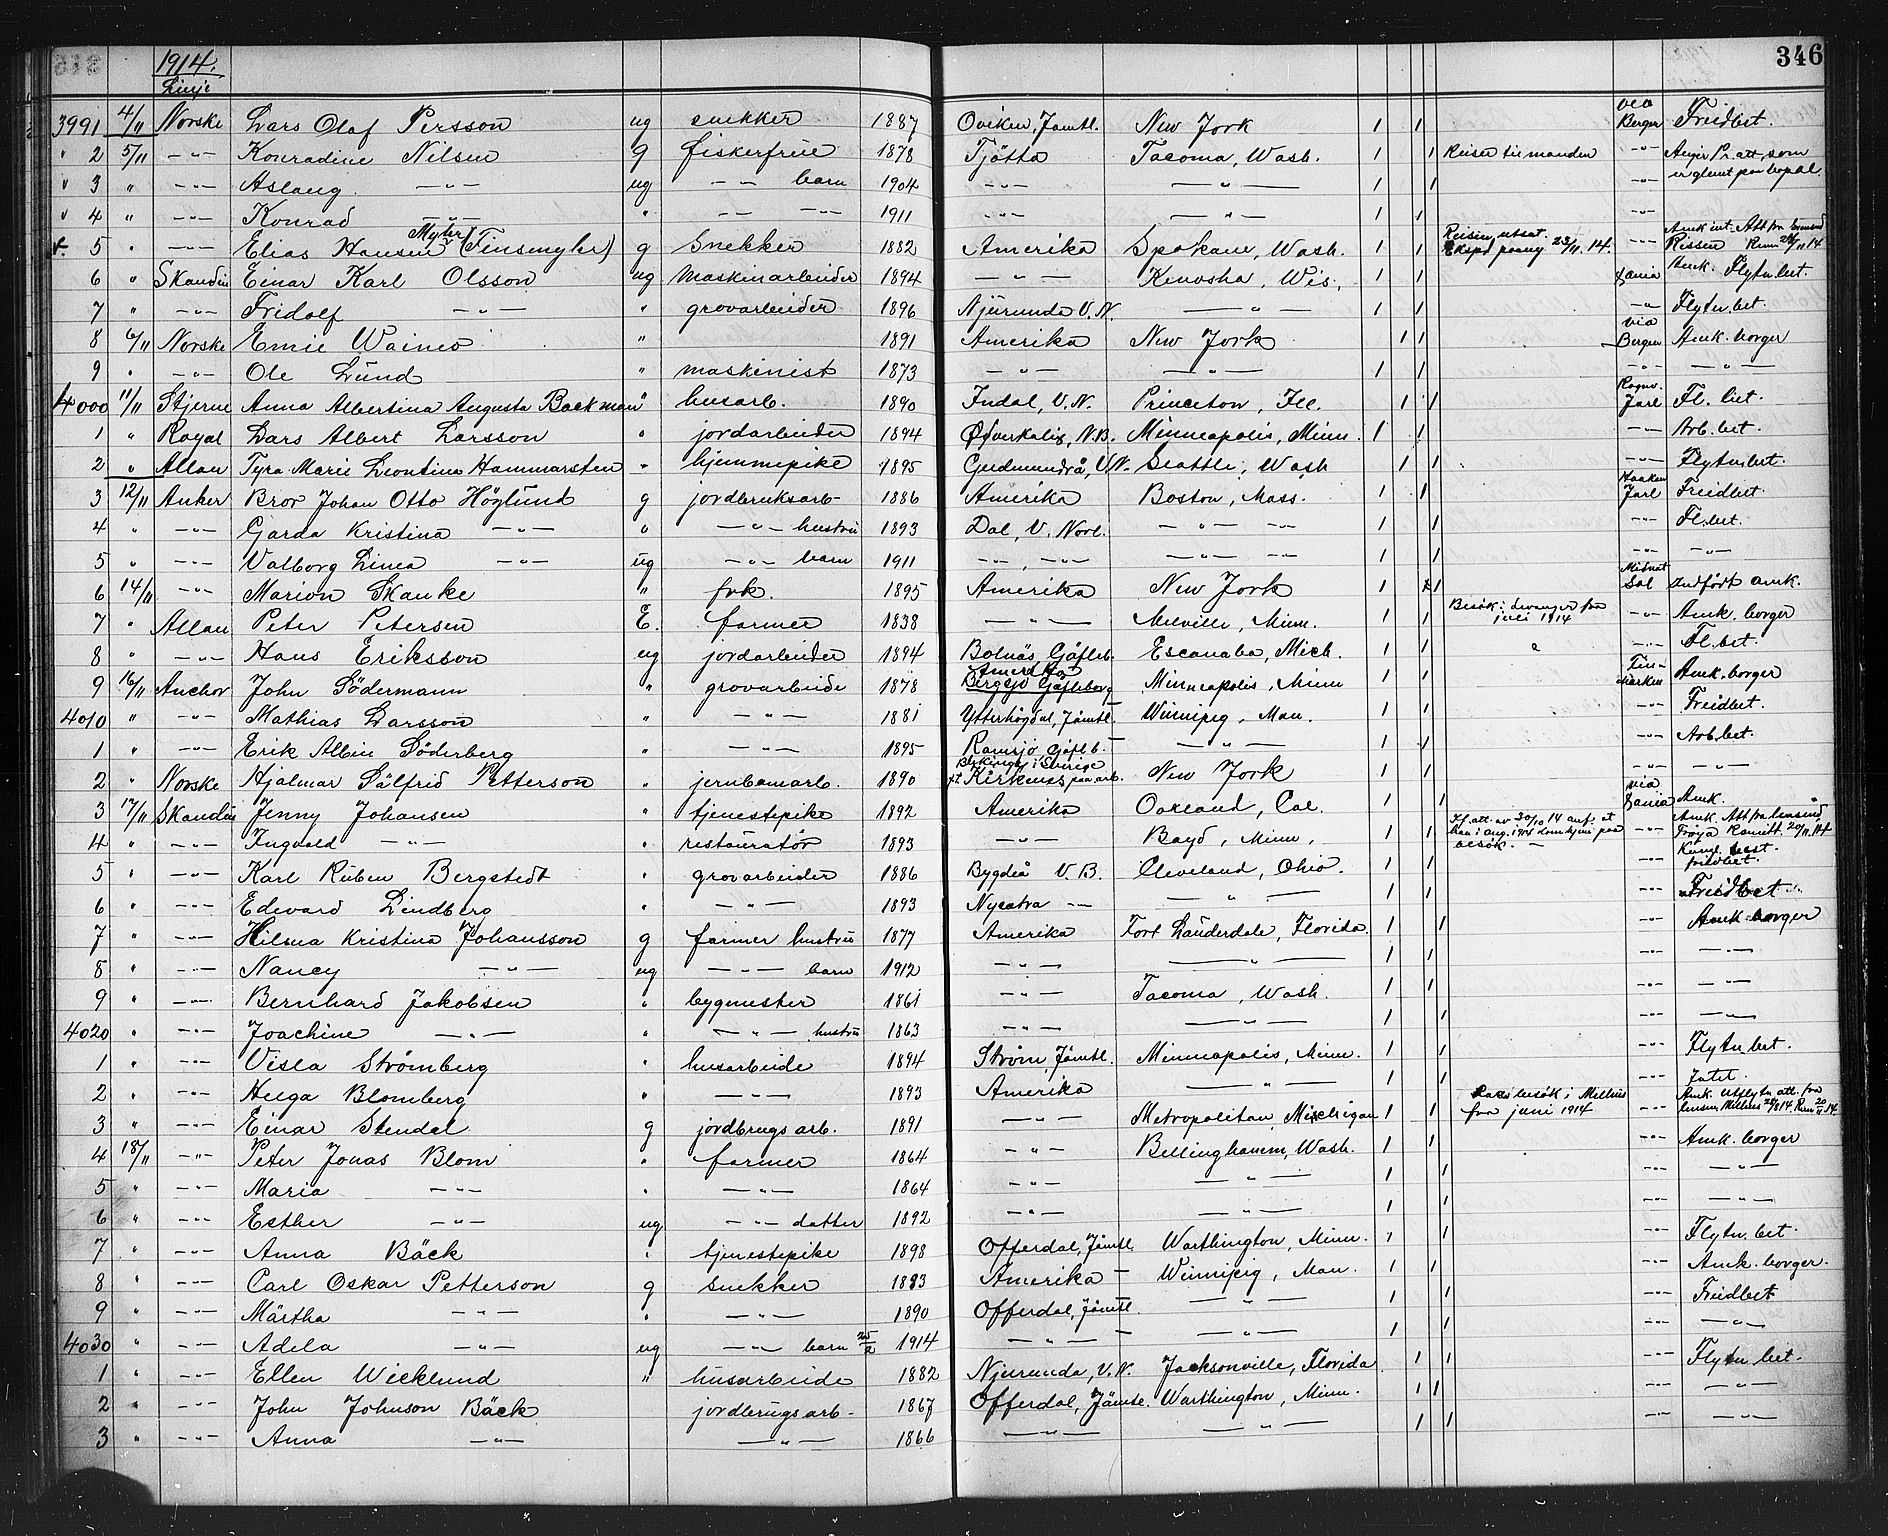 1914.
346
Linje
3991 4/11 Norske Lars Olaf Persson ug snekker 1887 Oviken, Jämtl. New York 1 1 via Bergen Freidbet.
" 2 5/11 -"- Konradine Nilsen g fiskerfrue 1878 Tjötta Tacoma, Wash. 1 1 Reiser til manden -"- Angir Pr. att, som
" 3 " -"- Aslaug -"- ug -"- barn 1904 -"- -"- 1 1 -"- er glemt paa bopæl
" 4 " -"- Konrad -"- " -"- -"- 1911 -"- -"- 1 1 -"-
+. 5 " -"- Elias Hansen Myhr (Finsmyhr) g Snekker 1882 Amerika Spokane, Wash. 1 1 Reisen utsat. Eksped paany 23/11. 14. -"- Rissen
6 " Skandin Einar Karl Olsson ug maskinarbeider 1894 -"- Kenosha, Wis., 1 1 Dania Amk. Flytn.bet.
7 " -"- Fridolf -"- " grovarbeider 1896 Njurunda V.N. -"- 1 1 -"- Flytn.bet.
8 6/11 Norske Emie Waineo " 1891 Amerika New York 1 1 via Bergen Amk. borger
9 " -"- Ole Lund " maskinist 1873 -"- -"- 1 1 -"- -"-
4000 11/11 Stjerne Anna Albertina Augusta Backman " husarb. 1890 Indal, V.N. Princeton, Ill. 1 1 Ragnv. Jarl Fl. bet.
1 " Royal Lars Albert Larsson " jordarbeider 1894 Öfverkalix, N.B. Minneapolis, Minn. 1 1 -"- Arb. bet.
2 " Allan Tyra Marie Leontina Hammarsten " hjemmepike 1895 Gudmundrå, V.N. Seattle, Wash 1 1 -"- Flytn.bet.
3 12/11 Anker Bror Johan Otto Höglund g jordbruksarb- 1886 Amerika Boston, Mass. 1 1 Haakon Jarl Freidbet
4 " -"- Gerda Kristina -"- " -"- hustru 1893 Dal, V. Norl. -"- -"- 1 1 -"- Fl.bet.
5 " -"- Valborg Linea -"- ug -"- barn 1911 -"- -"- -"- -"- 1 1 -"- -"-
6 14/11 -"- Marion Skanke " frk. 1895 Amerika New York 1 1 Midnat Sol Indfödt amk.
7 " Allan Peter Petersen E. farmer 1838 -"- Melville, Minn. 1 1 Besök i Levanger fra juli 1914 -"- Amk. borger
8 " -"- Hans Eriksson ug jordarbeider 1894 Bolnäs Gäfleb. Escanaba, Mich. 1 1 -"- Fl. bet
9 16/11 Anchor John Södermann " grovarbeide 1878 Amerika Bergsjö Gäfleborg Minneapolis, Minn 1 1 Finmarken Amk. borger
4010 " -"- Mathias Larsson " -"- 1881 Ytterhögdal, Jämtl Winnipeg, Man. 1 1 -"- Freidbet.
1 " -"- Erik Albin Söderberg " -"- 1895 Ramsjö Gäfleb. -"- 1 1 -"- Arb.bet.
2 " Norske Hjalmar Sälfrid Petterson " jernbanearb. 1890 Blekinge i Sverige Kirkenes paa arb. New York 1 1 -"- -"-
3 17/11 Skandin Jenny Johansen " tjenestepike 1892 Amerika Oakland, Cal. 1 1 via Dania Amk.
4 " -"- Ingvald -"- " restauratör 1893 -"- Boyd, Minn, 1 1 Ifl. att. av 30/10 14 anf. at han i aug. 1914 kom hjem paa besök. -"- Amk. Att fra lensmd Fröya 20/11.14
5 " -"- Karl Ruben Bergstedt " grovarbeider 1886 Bygdeå V.B. Cleveland, Ohio. 1 1 -"- freidbet.
6 " -"- Edward Lindberg " -"- 1893 Nysätra -"- -"- 1 1 -"- Freidbet
7 " -"- Hilma Kristina Johansson g farmer hustru 1877 Amerika Fort Lauderdale, Florida. 1 1 -"- Amk. borger
8 " -"- Nancy -"- ug -"- barn 1912 -"- -"- 1 1 -"- -"-
9 " -"- Bernhard Jakobsen " bygmester 1861 -"- Tacoma, Wash. 1 1 -"- -"-
4020 " -"- Joachine -"- " -"- hustru 1863 -"- -"- 1 1 -"- -"-
1 " -"- Visla Strömberg " husarbeide 1894 Ström, Jämtl. Minneapolis, Minn. 1 1 -"- Flytn. bet.
2 " -"- Helga Blomberg " -"- 1893 Amerika -"- 1 1 -"- Intet.
3 " -"- Einar Stendal g jordbrugsarb. 1891 -"- Metropolitan, Michigan 1 1 besök i Melhus fra juni 1914 -"- Amk. Utflytn. att. fra lensm. Melhus
4 18/11 -"- Peter Jonas Blom " farmer 1864 -"- Bellinghamm, Wash. 1 1 -"- Amk. borger
5 " -"- Maria -"- " -"- 1864 -"- -"- 1 1 -"- -"-
6 " -"- Esther -"- ug -"- datter 1892 -"- -"- 1 1 -"- -"-
7 " -"- Anna Bäck " tjenestepike 1898 Offerdal, Jämtl. Warthington, Minn. 1 1 -"- Flytn. bet.
8 " -"- Carl Oskar Petterson g snekker 1883 Amerika Winnipeg, Man. 1 1 -"- Amk. borger.
9 " -"- Märtha -"- " -"- 1890 Offerdal, Jämtl. -"- 1 1 -"- Freidbet
4030 " -"- Adela -"- ug -"- barn 25/2 1914 -"- -"- 1 1 -"- -"-
1 " -"- Ellen Wicklund " husarbeide 1882 Njurunda, V.N. Jacksonville, Florida. 1 1 -"- Flytn bet.
2 " -"- John Johnson Bäck jordbrugsarb- 1867 Offerdal, Jämtl. Warthington, Minn. 1 1 -"- -"-
3 " -"- Anna -"- -"- 1866 -"- -"- 1 1 -"- -"-